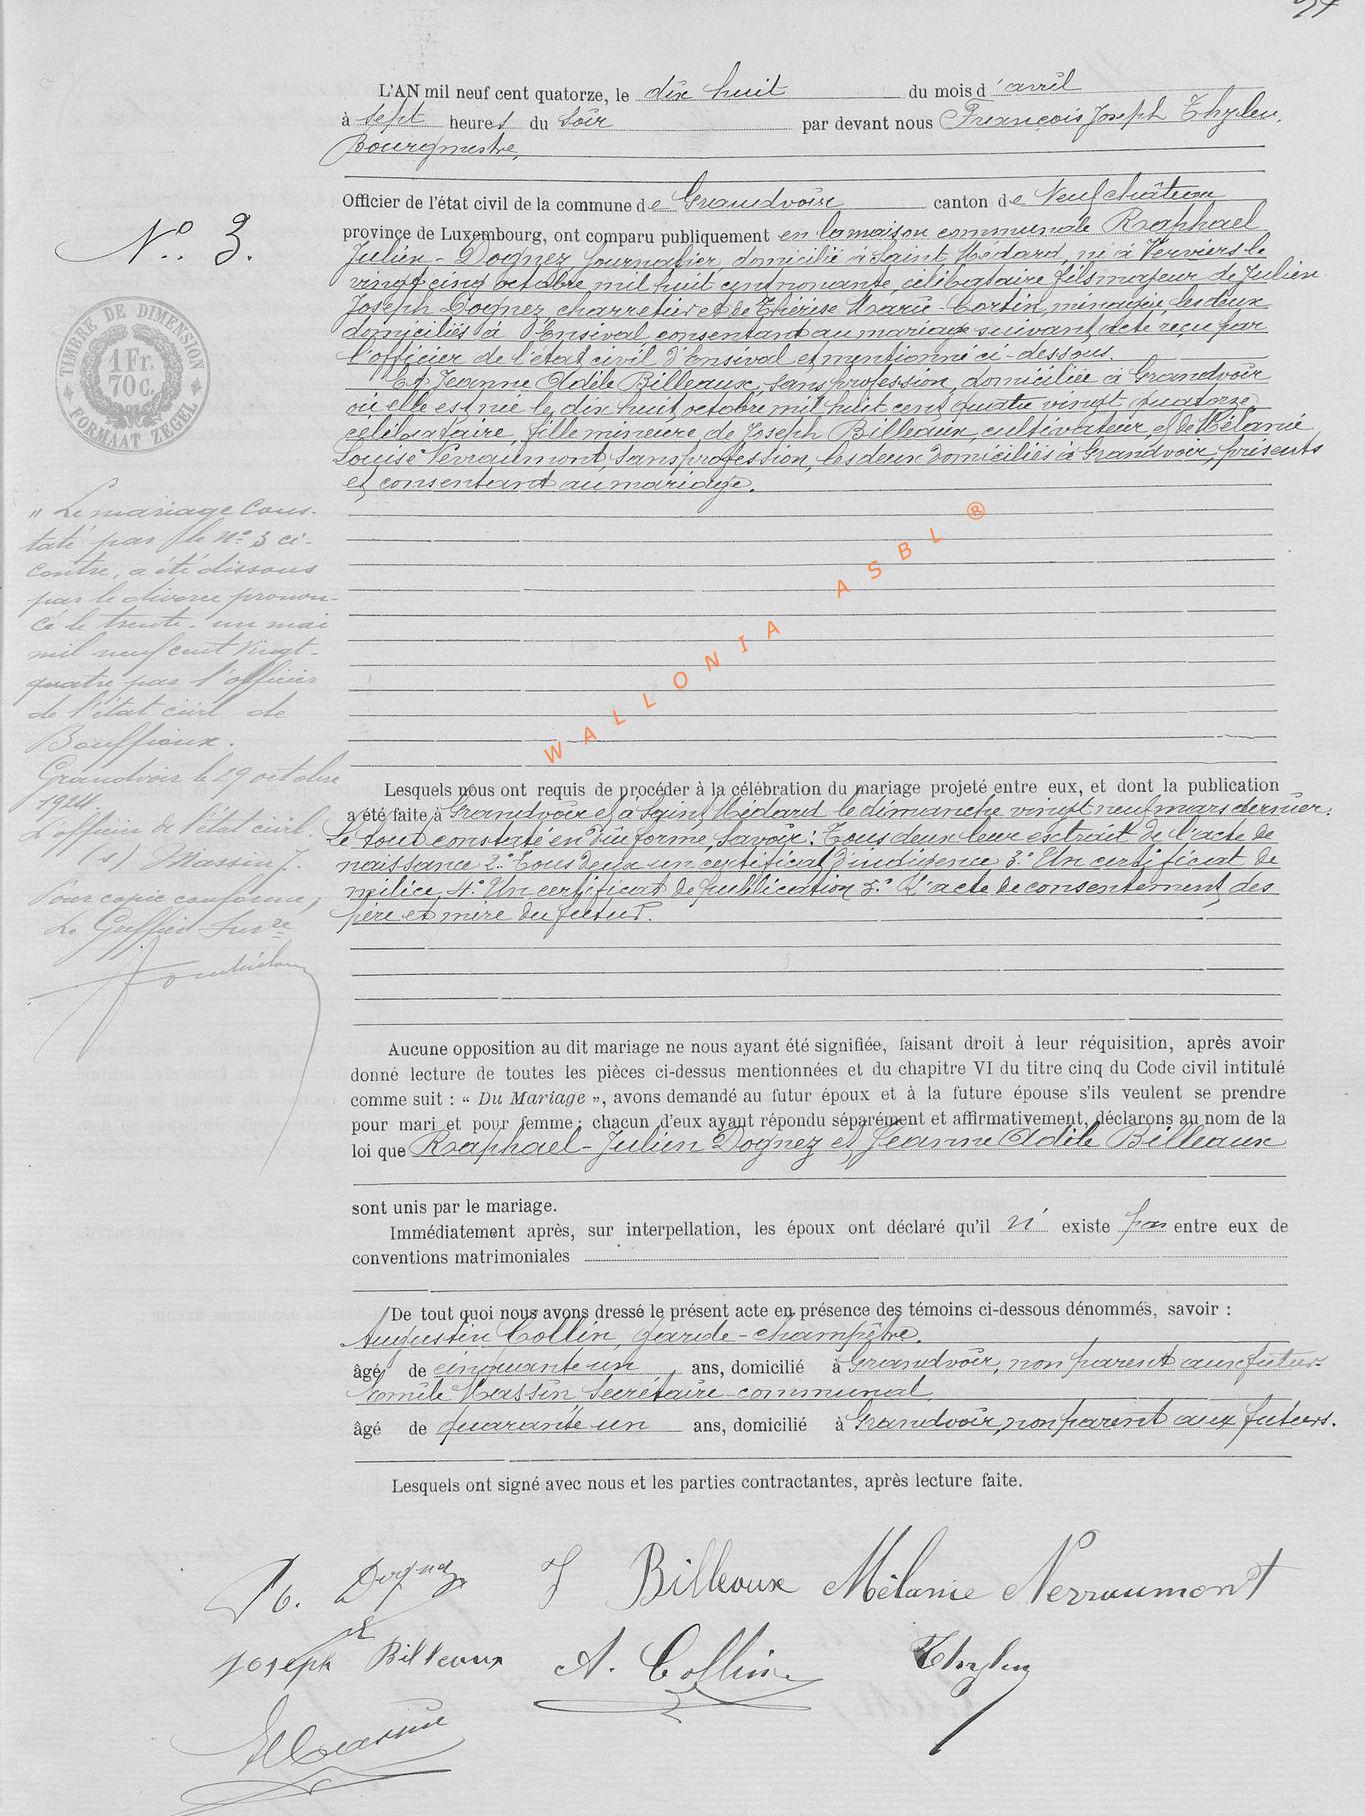 L'AN mil neuf cent quatorze, le dix huit du mois d'avril
à sept heures du soir par devant nous François Joseph Thyleu,
Bourgmestre,
Officier de l'état civil de la commune de Grandvoir canton de Neufchâteau
province de Luxembourg, ont comparu publiquement en la maison communale Raphael
Julien - Dognez journalier, domicilié à Saint Médard, né à Verviers le
vingt cinq octobre mil huit cent nonante, célibataire fils majeur de Julien
Joseph Dognez, charretier et de Thérèse Marie Cortin, ménagère, les deux
domiciliés à Ensival consentant au mariage suivant acte reçu par
l'officier de l'état civil d'Ensival et mentionné ci-dessous.
Et Jeanne Adèle Billeaux, sans profession, domiciliée à Grandvoir
où elle est née le dix huit octobre mil huit cent quatre vingt quatorze,
célibataire, fille mineure de Joseph Billeaux, cultivateur, et de Mélanie
Louise Nevraumont, sans profession, les deux domiciliés à Grandvoir, présents
et consentant au mariage.
N° 3.
TIMBRE DE DIMENSION
1 Fr.
70 C.
FORMAAT ZEGEL
" Le mariage cons-
taté par le n° 3 ci-
contre, a été dissous
par le divorce pronon-
cé le trente-un mai
mil neuf cent vingt-
quatre par l'officier
de l'état civil de
Bouffioux.
Grandvoir le 29 octobre
1924.
L'officier de l'état civil.
(s) Massin J.
Pour copie conforme,
Le Greffier
WALLONIA ASBL ®
Lesquels nous ont requis de procéder à la célébration du mariage projeté entre eux, et dont la publication
a été faite à Grandvoir et à Saint Médard le dimanche vingt neuf mars dernier.
Le tout constaté en due forme, savoir: 1° Tous deux leur extrait de l'acte de
naissance 2° Tous deux un certificat d'indigence 3° Un certificat de
milice, 4° Un certificat de publication 5° L'acte de consentement des
père et mère du futur.
Aucune opposition au dit mariage ne nous ayant été signifiée, faisant droit à leur réquisition, après avoir
donné lecture de toutes les pièces ci-dessus mentionnées et du chapitre VI du titre cinq du Code civil intitulé
comme suit : « Du Mariage », avons demandé au futur époux et à la future épouse s'ils veulent se prendre
pour mari et pour femme; chacun d'eux ayant répondu séparément et affirmativement, déclarons au nom de la
loi que Raphael-Julien Dognez et Jeanne Adèle Billeaux
sont unis par le mariage.
Immédiatement après, sur interpellation, les époux ont déclaré qu'il n' existe pas entre eux de
conventions matrimoniales
De tout quoi nous avons dressé le présent acte en présence des témoins ci-dessous dénommés, savoir :
Augustin Collin, garde-champêtre.
âgé de cinquante un ans, domicilié à Grandvoir, non parent aux futurs
Emile Massin secrétaire communal
âgé de quarante un ans, domicilié à Grandvoir, non parent aux futurs.
Lesquels ont signé avec nous et les parties contractantes, après lecture faite.
Dognez J Billeaux Mélanie Nevraumont
Joseph Billeaux A. Collin Thyleu
E Massin